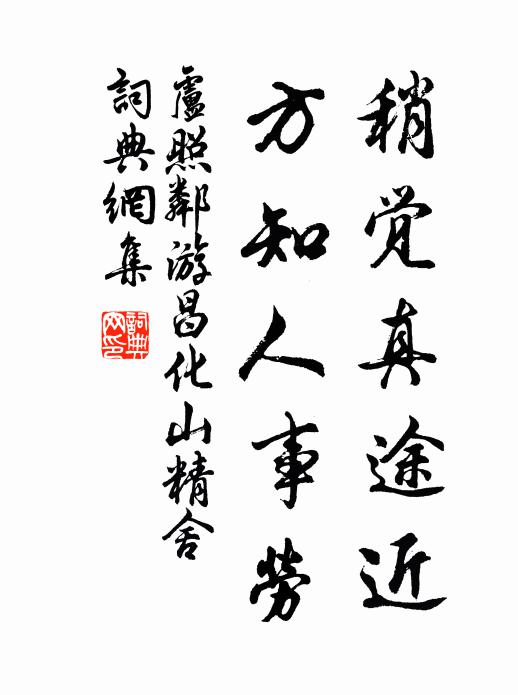 稍觉真途近
方知人事勞
盧照鄰游昌化山精舍
詞典網集
詞典网印